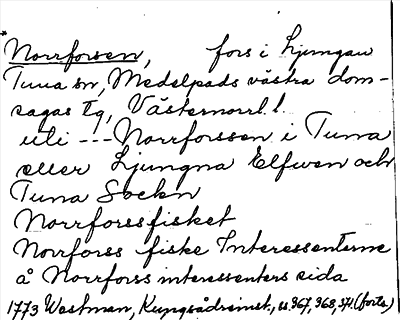 * Norrforsen, fors i Ljungan
Tuna sn, Medelpads västra dom-
sagas tg, Västernorrl. l.
uti --- Norrforssen i Tuna
eller Ljungna Elfwen och
Tuna Sockn
Norrforssfisket
Norrforss fiske Interessenterne
å Norrforss interessenters sida
1773 Westman, Kungsådreinst., ss. 367, 368, 371. (forts.)